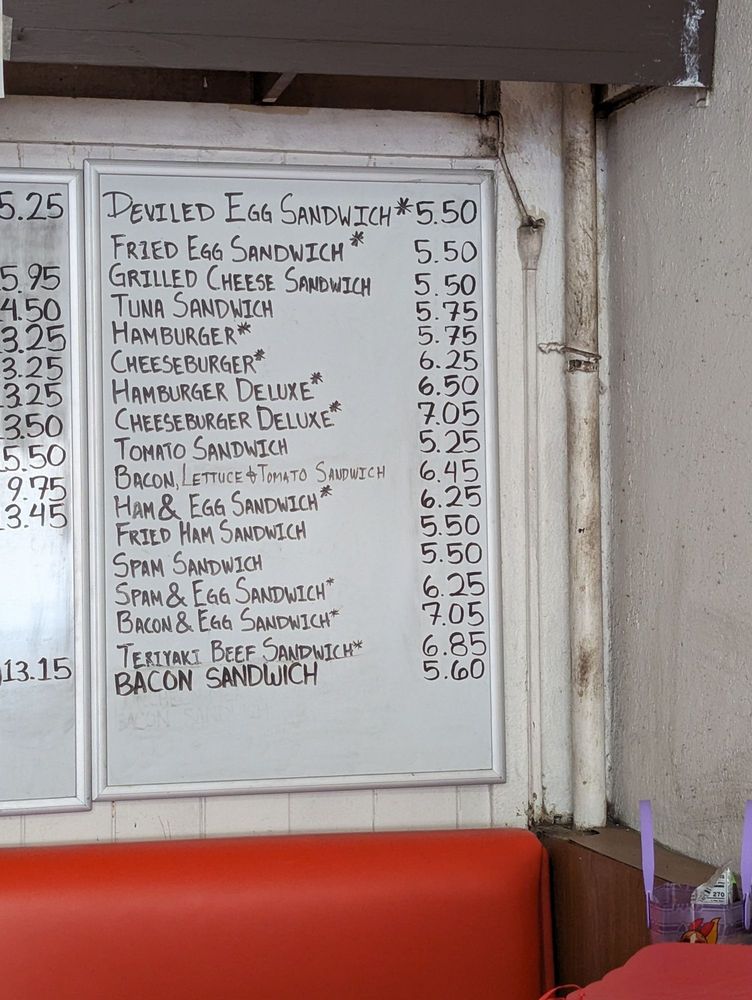 5.25
5.95
4.50
3.25
3.25
3.25
3.50
5.50
9.75
3.45
13.15
DEVILED EGG SANDWICH* 5.50
FRIED EGG SANDWICH* 5.50
GRILLED CHEESE SANDWICH 5.50
TUNA SANDWICH 5.75
HAMBURGER* 5.75
CHEESEBURGER* 6.25
HAMBURGER DELUXE* 6.50
CHEESEBURGER DELUXE* 7.05
TOMATO SANDWICH 5.25
BACON, LETTUCE & TOMATO SANDWICH 6.45
HAM & EGG SANDWICH* 6.25
FRIED HAM SANDWICH 5.50
SPAM SANDWICH 5.50
SPAM & EGG SANDWICH* 6.25
BACON & EGG SANDWICH* 7.05
TERIYAKI BEEF SANDWICH* 6.85
BACON SANDWICH 5.60
BACON SANDWICH
270